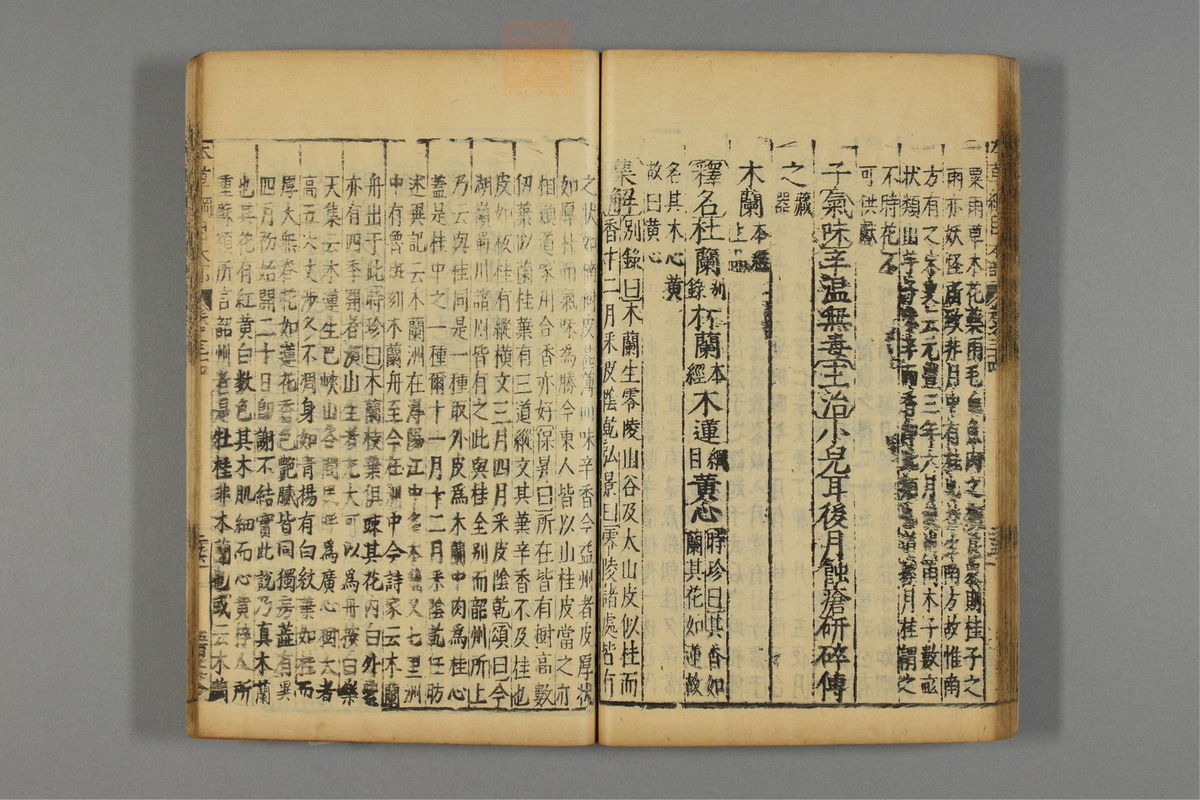 粟雨草木花藥雨毛魚肉之則桂子之
雨亦妖怪所致非月中有桂也桂子南方故惟南
方有之宋史云元豐三年六月雨木子數畝
狀類山芋子味辛而香即此也道經月桂謂之
不時花不
可供獻
子氣味辛温無毒主治小兒耳後月蝕瘡研碎傅
之藏器
木蘭本經上品
釋名杜蘭別錄林蘭本經木蓮綱目黄心時珍曰其香如蘭其花如蓮故
名其木心黄
故曰黄心
集解別錄曰木蘭生零陵山谷及太山皮似桂而
香十二月采皮陰乾弘景曰零陵諸處皆有
之狀如楠樹皮甚薄而味辛香今益州者皮厚狀
如厚朴而氣味為勝今東人皆以山桂皮當之亦
相類道家用合香亦好保昇曰所在皆有樹高數
仞葉似菌桂葉有三道縱文其葉辛香不及桂也
皮如板桂有縱橫文三月四月采皮陰乾頌曰今
湖嶺蜀川諸州皆有之此與桂全别而韶州所上
乃云與桂同是一種取外皮爲木蘭中肉爲桂心
蓋是桂中之一種爾十一月十二月采陰乾任昉
述異記云木蘭洲在潯陽江中多木蘭又七里洲
中有魯班刻木蘭舟至今在洲中今詩家云木蘭
舟出于此時珍曰木蘭枝葉俱疎其花内白外紫
亦有四季開者深山生者尤大可以爲舟按白樂
天集云木蓮生巴峽山谷間巴呼爲黄心樹大者
高五六丈涉冬不凋身如青楊有白紋葉如桂而
厚大無脊花如蓮花香色艷膩皆同獨房蕊有異
四月初始開二十日即謝不結實此說乃真木蘭
也其花有紅黄白數色其木肌細而心黄梓人所
重蘇頌所言韶州者是牡桂非木蘭也或云木蘭